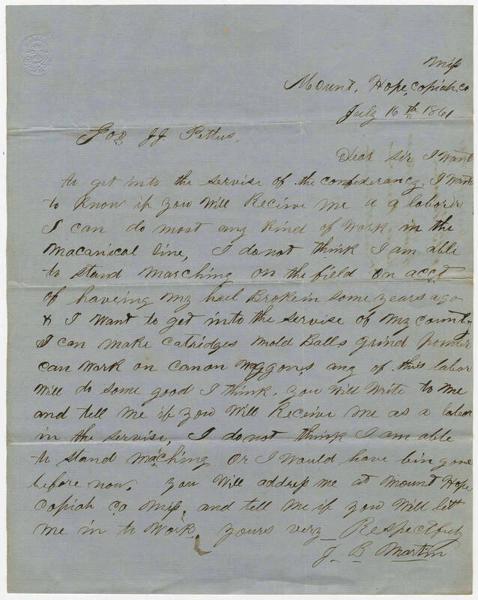 Miss
Mount, Hope, Copiah, co
July 16th 1861
Gov JJ Pettus.
Dear sir I Want
to get into the servise of the confederancy I Want
to Know if you Will Recieve Me a a laborer
I can do most any Kind of Work in the
Macanical line, I do not think I am able
to stand Marching on the field on acct
of haveing My heel Broke in some years ago
& I Want to get into the servise of My Country
I can make catridges Mold Balls grind
can Work on canon Waggons any of this labor
Will do some good I think, you Will Write to Me
and tell Me if you Will Recieve Me as a laborer
in the servise, I do not think I am able
to stand Maching or I Would have bin gone
before now. you Will address Me at Mount Hope
Copiah Co Miss, and tell Me if you Will let
Me in to Work, yours very Respectfuly
J. B. Martin